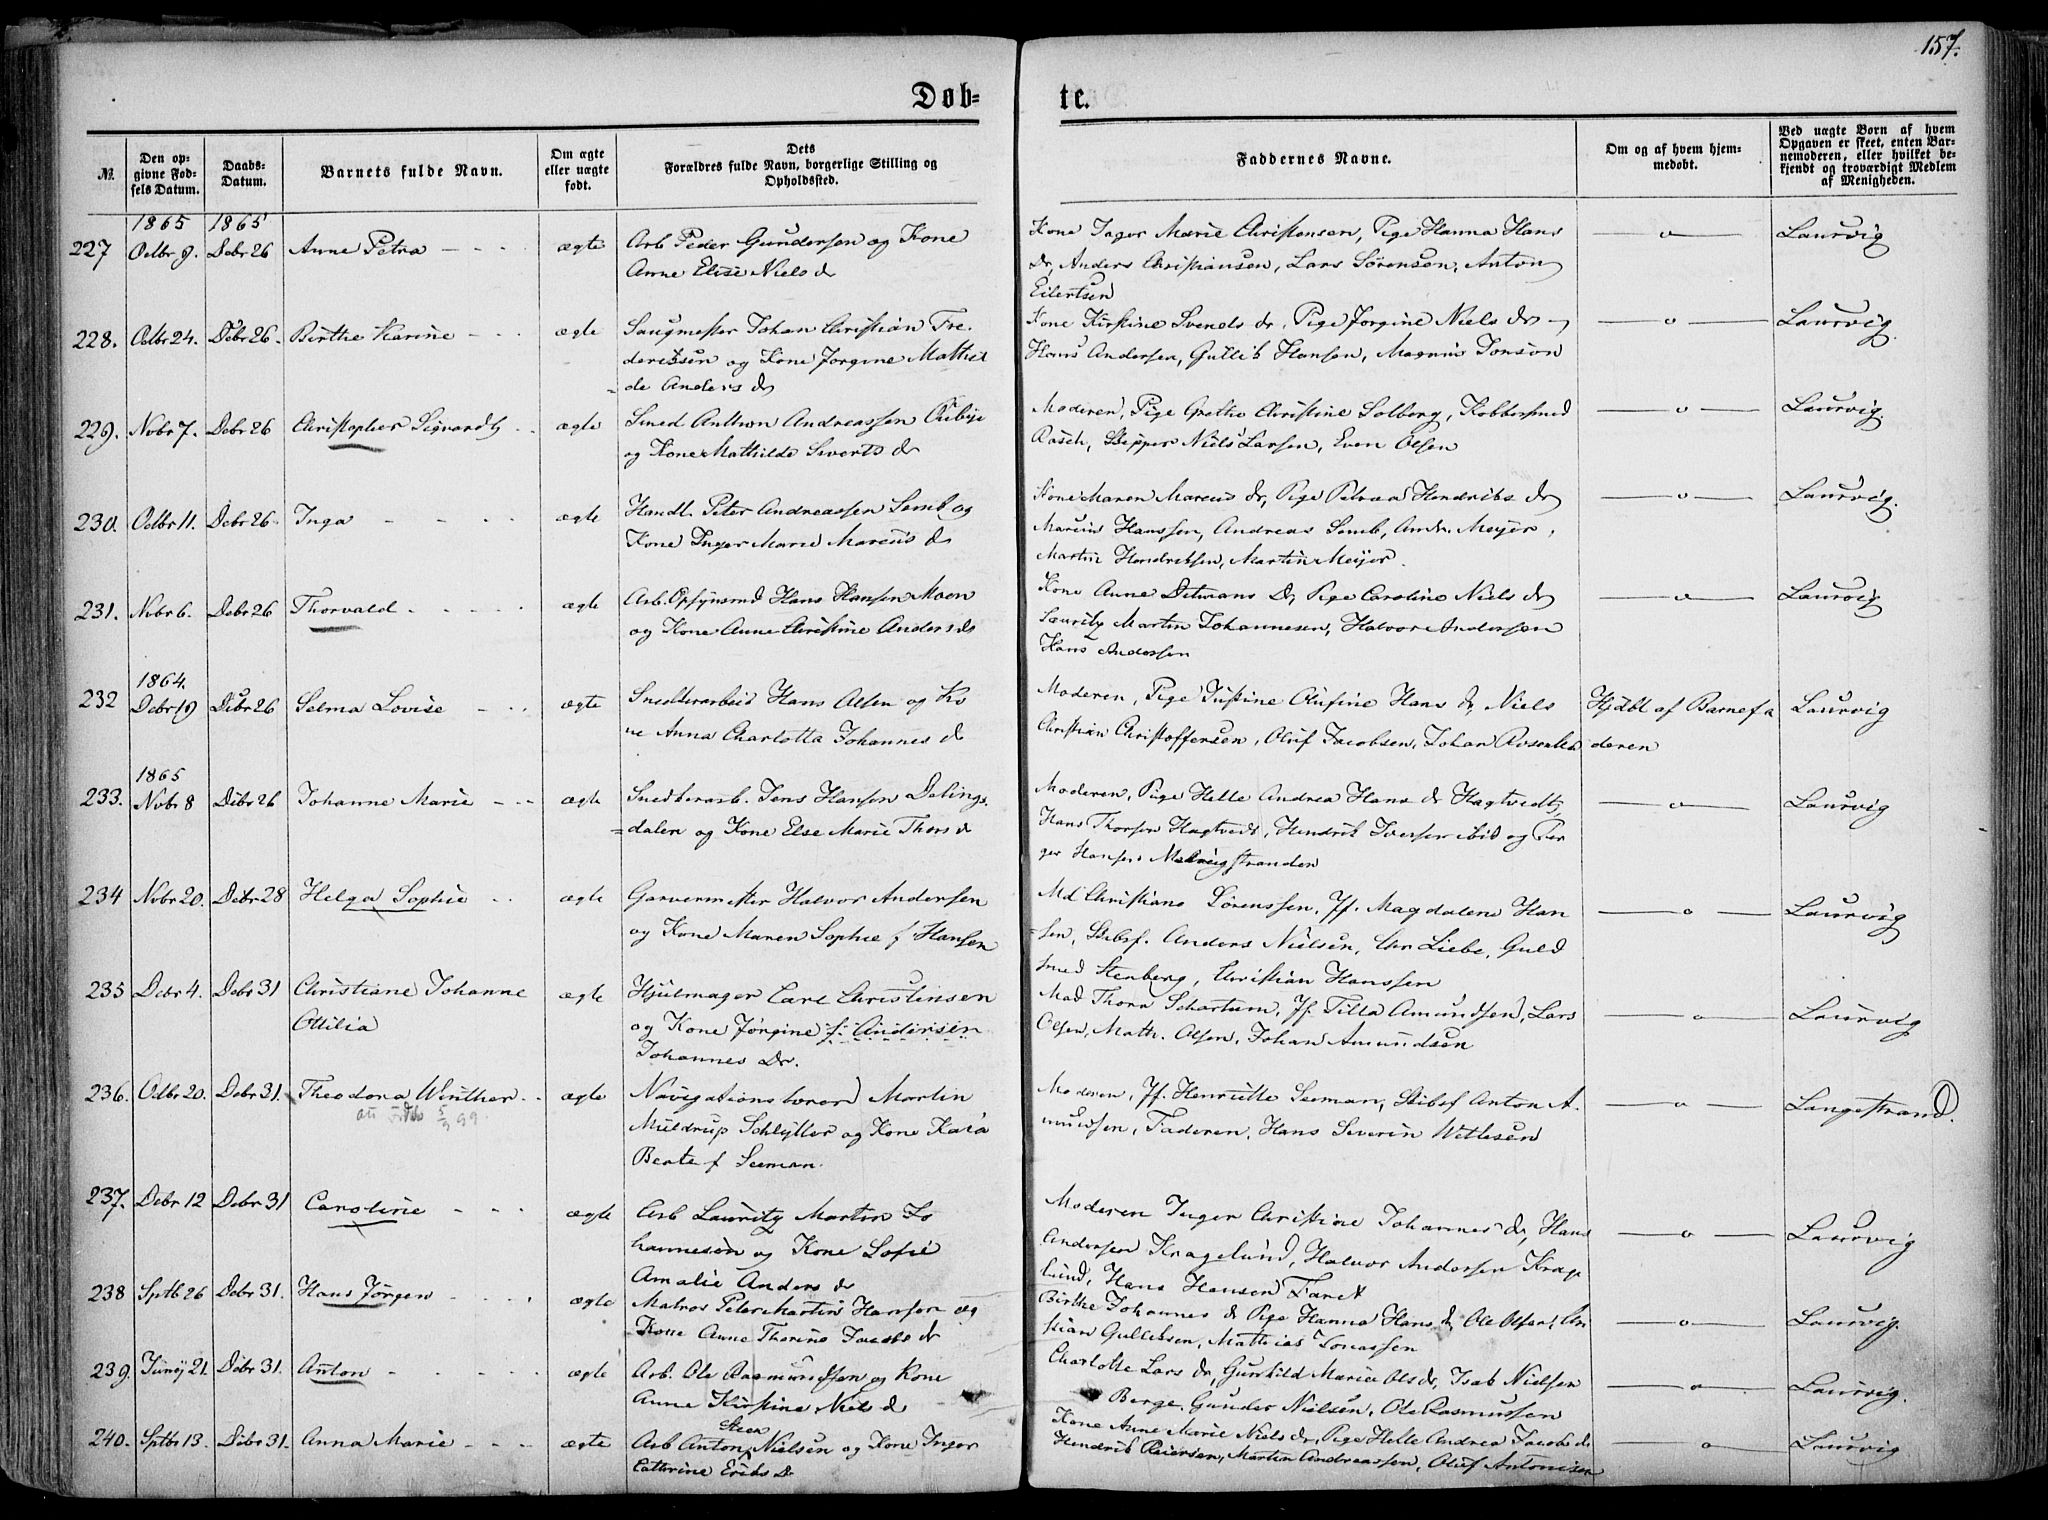 157.
Døb-
te.
№.
Den op-
givne Fød-
sels Datum.
Daabs-
Datum.
Barnets fulde Navn.
Om ægte
eller uægte
født.
Dets
Forældres fulde Navn, borgerlige Stilling og
Opholdssted.
Faddernes Navne.
Om og af hvem hjem-
medøbt.
Ved uægte Børn af hvem
Opgaven er skeet, enten Bar-
nemoderen, eller hvilket be-
kjendt og troværdigt Medlem
af Menigheden.
1865 1865
227 Octbr 9. Debr 26 Anne Petra ægte Arb Peder Gundersen og Kone
Anne Elise Niels d
Kone Inger Marie Christensen, Pige Hanna Hans
dr, Anders Christiansen, Lars Sørensen, Anton
Eilertsen
o
Laurvig
228. Octbr 24. Debr 26. Birthe Karine ægte Saugmester Johan Christian Fre-
deriksen og Kone Jørgine Mathil
de Anders d
Kone Kirstine Svends dr, Pige Jørgine Niels dr
Hans Andersen, Gullik Hansen, Magnus Jonson
o
Laurvig.
229. Nobr 7. Debr 26 Christopher Sigvardt ægte Smed Anthon Andreassen
og Kone Mathilde Siverts d
Moderen, Pige Grethe Christine Solberg, Kobbersmed
Rasch, Skipper Niels Larsen, Even Olsen
o
Laurvig.
230. Octbr 11. Debr 26 Inga ægte Handl. Peter Andreassen Semb og
Kone Inger Marie Marcus d
Kone Maren Marcus dr, Pige Petrea Hendriks d
Marcus Hanssen, Andreas Semb, Andr. Meyer,
Martin Hendriksen, Martin Meijer.
o
Laurvig.
231. Nobr 6. Debr 26 Thorvald ægte Arb. Opsynsmd Hans Hansen Moen
og Kone Anne Christine Anders d
Kone Anne Ditmans D, Pige Caroline Niels d
Lauritz Martin Johannesen, Halvor Andersen
Hans Andersen
o
Laurvig
1864.
232 Debr 19 Debr 26 Selma Lovise ægte Snedkerarbeid Hans Olsen og Ko
ne Anna Charlotta Johannes d
Moderen, Pige Justine Olufine Hans d, Niels
Christian Christoffersen, Oluf Jacobsen, Johan
Hjdbt af Barnefa
deren
Laurvig
1865
233. Nobr 8 Debr 26 Johanne Marie ægte Snedkerarb. Jens Hansen Dolings
dalen og Kone Else Marie Thors d
Moderen, Pige Helle Andrea Hans d Hagtvedt,
Hans Thorsen Hagtvedt, Hendrik Iversen ibid og Per
ger Hansen
o
Laurvig
234 Nobr 20. Debr 28 Helga Sophie ægte Garvermester Halvor Andersen
og Kone Maren Sophie f Hansen
Md Christiane Sørenssen, Jf. Magdalene Han
sen, Skibsf. Anders Nielsen, Chr Liebe, Guld
smed Stenberg, Christian Hanssen
o
Laurvig
235 Debr 4. Debr 31 Christiane Johanne
Ottilia
ægte Hjulmager Carl Christensen
og Kone Jørgine f. Andersen
Johannes Dr.
Mad Thora Schartum, Jf. Tilla Amundsen, Lars
Olsen, Math. Olsen, Johan Amundsen
o
Laurvig
236. Octbr 20. Debr 31. Theodora Winther
99.
ægte Navigationslærer Martin
Muldrup Schlytter og Kone Kaia
Beate f Seeman.
Moderen, Jf. Henriette Seeman, Skibsf Anton A-
mundsen, Faderen, Hans Severin Wettesen
o
Langestrand.
237. Debr 12 Debr 31 Caroline ægte Arb Lauritz Martin Jo
hannesen og Kone Sofie
Amalie Anders d
Moderen Inger Christine Johannes dr, Hans
Andersen Kragelund, Halvor Andersen Krage
lund, Hans Hansen
o
Laurvig
238 Sptb 26 Debr 31. Hans Jørgen ægte Matros Peter Martin Hansen og
Kone Anne Thorine Jacobs d
Birthe Johannes d Pige Hanna Hans d, Ole Olsen, Chri
stian Gulliksen, Mathias Jonassen
o
Laurvig.
239. Junij 21. Debr 31. Anton ægte Arb. Ole Rasmundsen og Kone
Anne Kirstine Niels d
Charlotte Lars dr, Gunhild Marie Ols dr, Isak Nielsen
Berge, Gunder Nielsen, Ole Rasmussen
o
Laurvig.
240. Sptbr 13. Debr 31. Anna Marie ægte Arb Anton Steen Nielsen og Kone Inger
Cathrine Eriks d
Kone Anne Marie Niels dr, Pige Helle Andrea Jacobs d
Hendrik Reiersen, Martin Andreassen, Oluf Antonisen
o
Laurvig